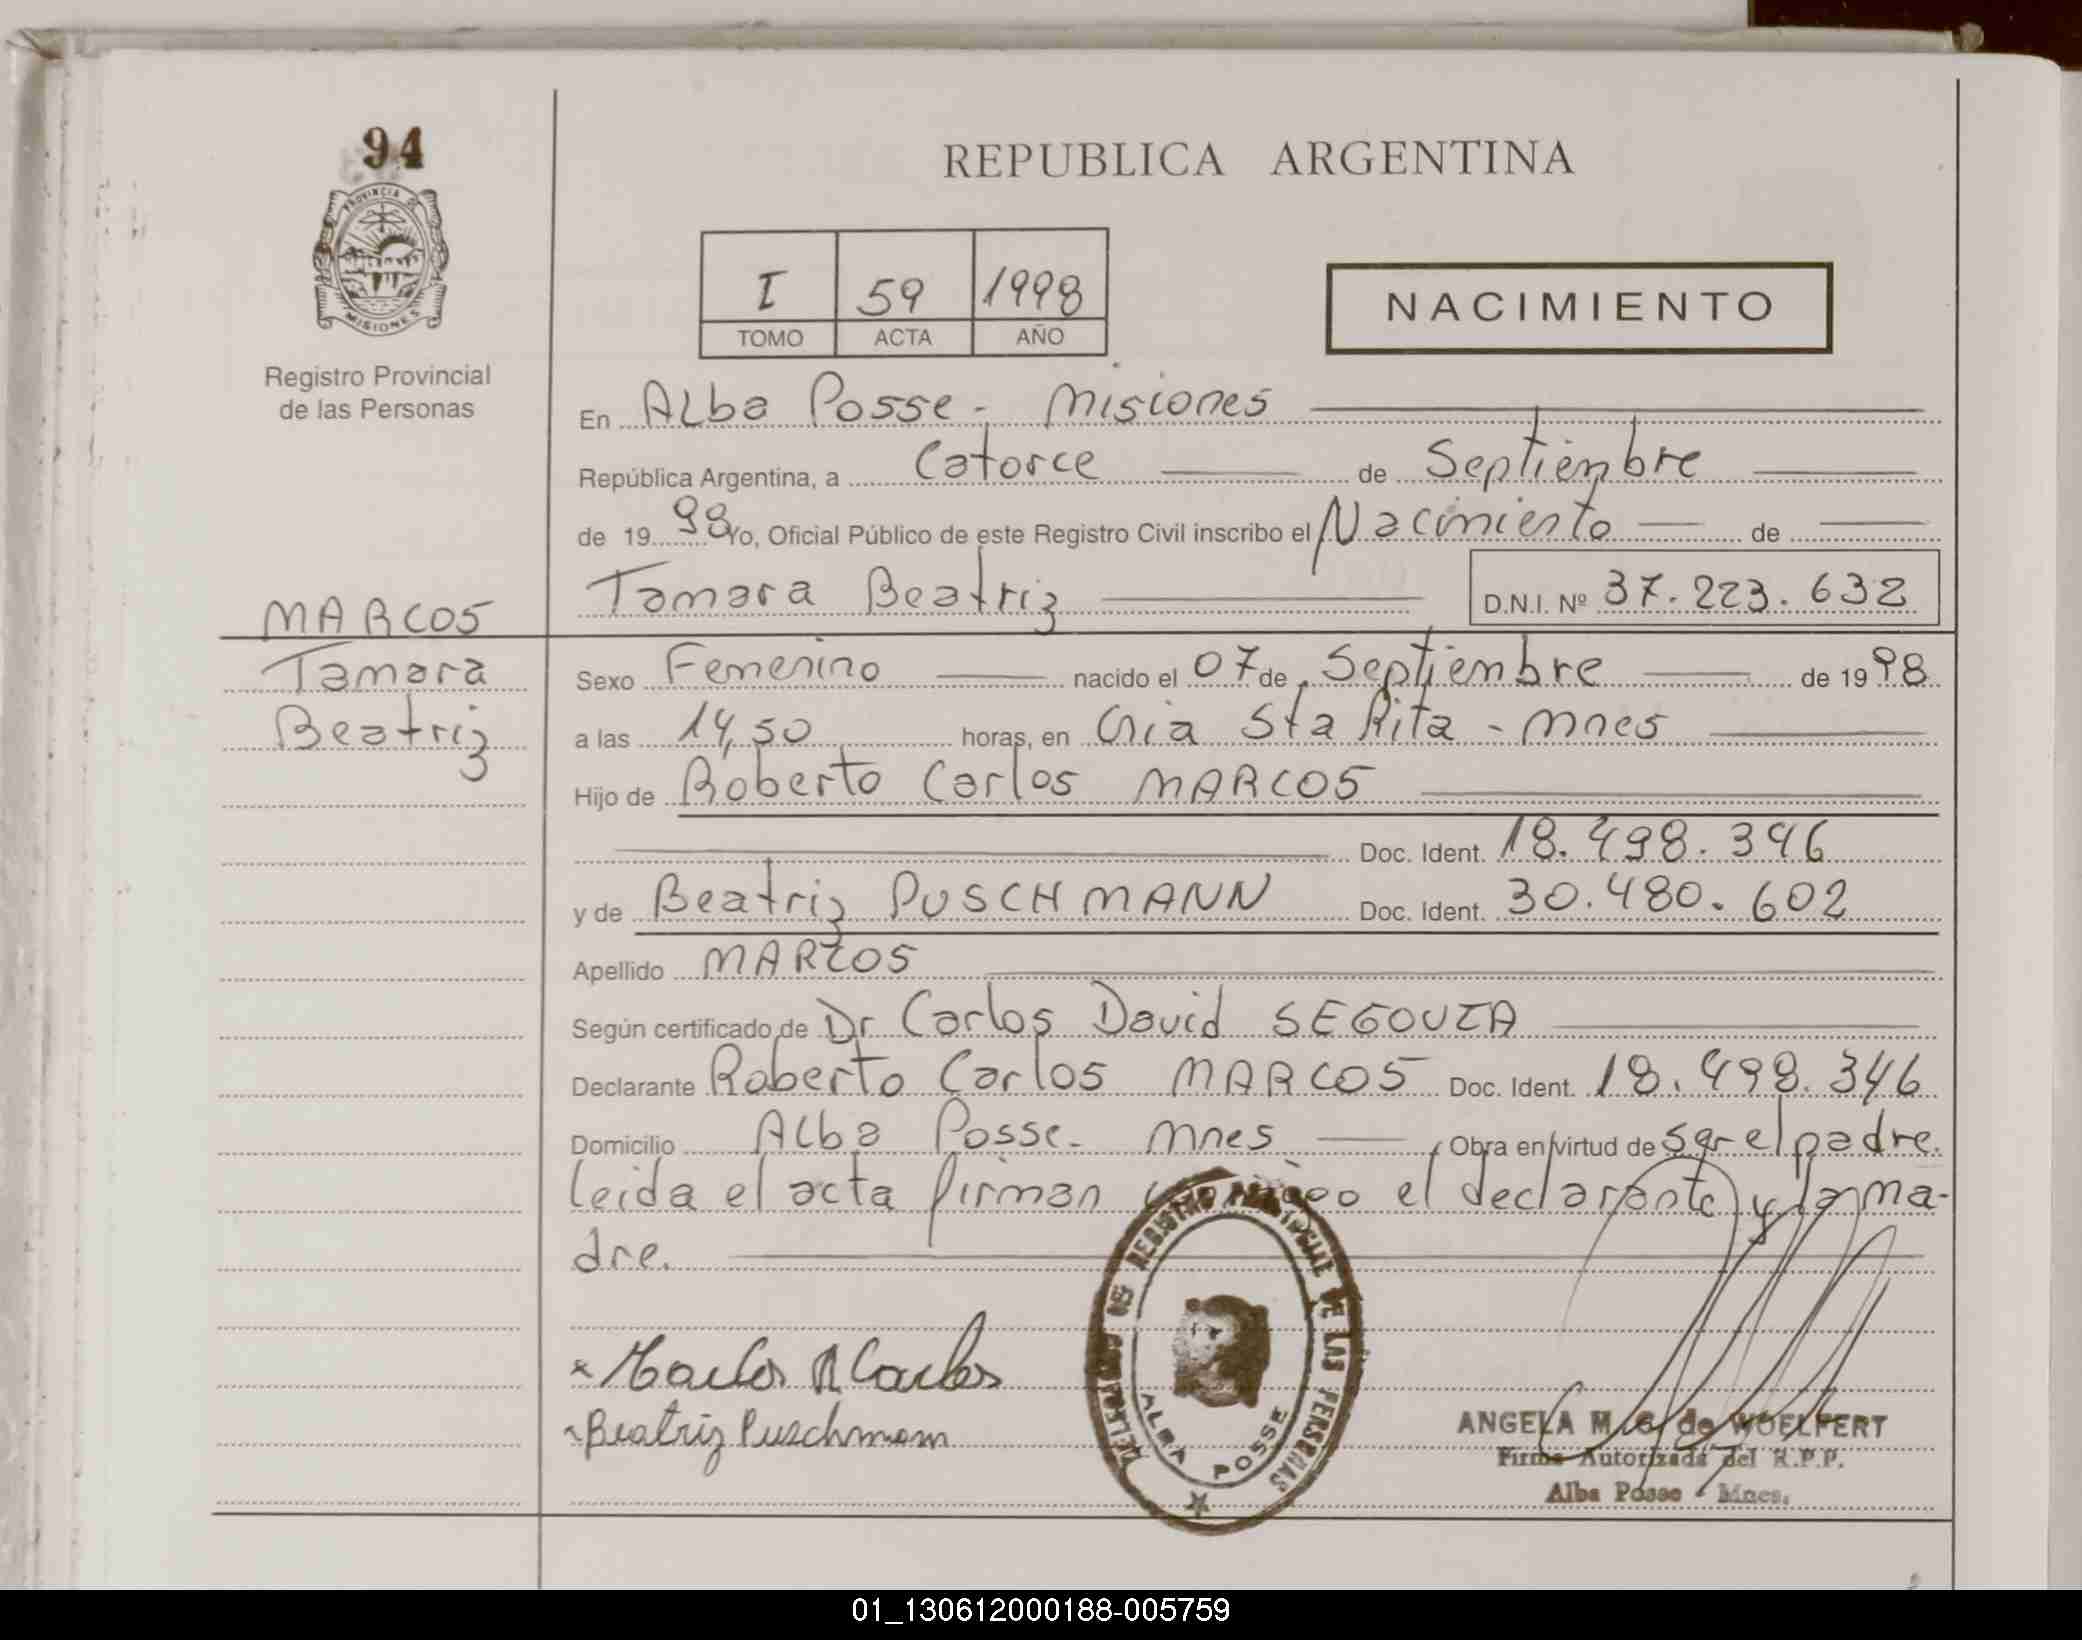 94
PROVINCIA DE
MISIONES
Registro Provincial
de las Personas
REPUBLICA ARGENTINA
I 59 1998
TOMO ACTA AÑO
NACIMIENTO
En Alba Posse - Misiones
República Argentina, a Catorce de Septiembre
de 19 98 Yo, Oficial Público de este Registro Civil inscribo el Nacimiento de
Tamara Beatriz D.N.I. Nº 37.223.632
MARCOS
Tamara
Beatriz
Sexo Femenino nacido el 07 de Septiembre de 19 98
a las 14,50 horas, en Cnia Sta Rita - Mnes
Hijo de Roberto Carlos MARCOS
Doc. Ident. 18.498.346
y de Beatriz PUSCHMANN Doc. Ident. 30.480.602
Apellido MARCOS
Según certificado de Dr Carlos David SEGOVIA
Declarante Roberto Carlos MARCOS Doc. Ident. 18.498.346
Domicilio Alba Posse - Mnes Obra en virtud de ser el padre.
Leida el acta firman el declarante y la ma-
dre.
REGISTRO PROVINCIAL DE LAS PERSONAS
ALBA POSSE
Marcos R Carlos
Beatriz Puschmann
ANGELA M. G. de WOELFERT
Firma Autorizada del R.P.P.
Alba Posse - Mnes.
01_130612000188-005759